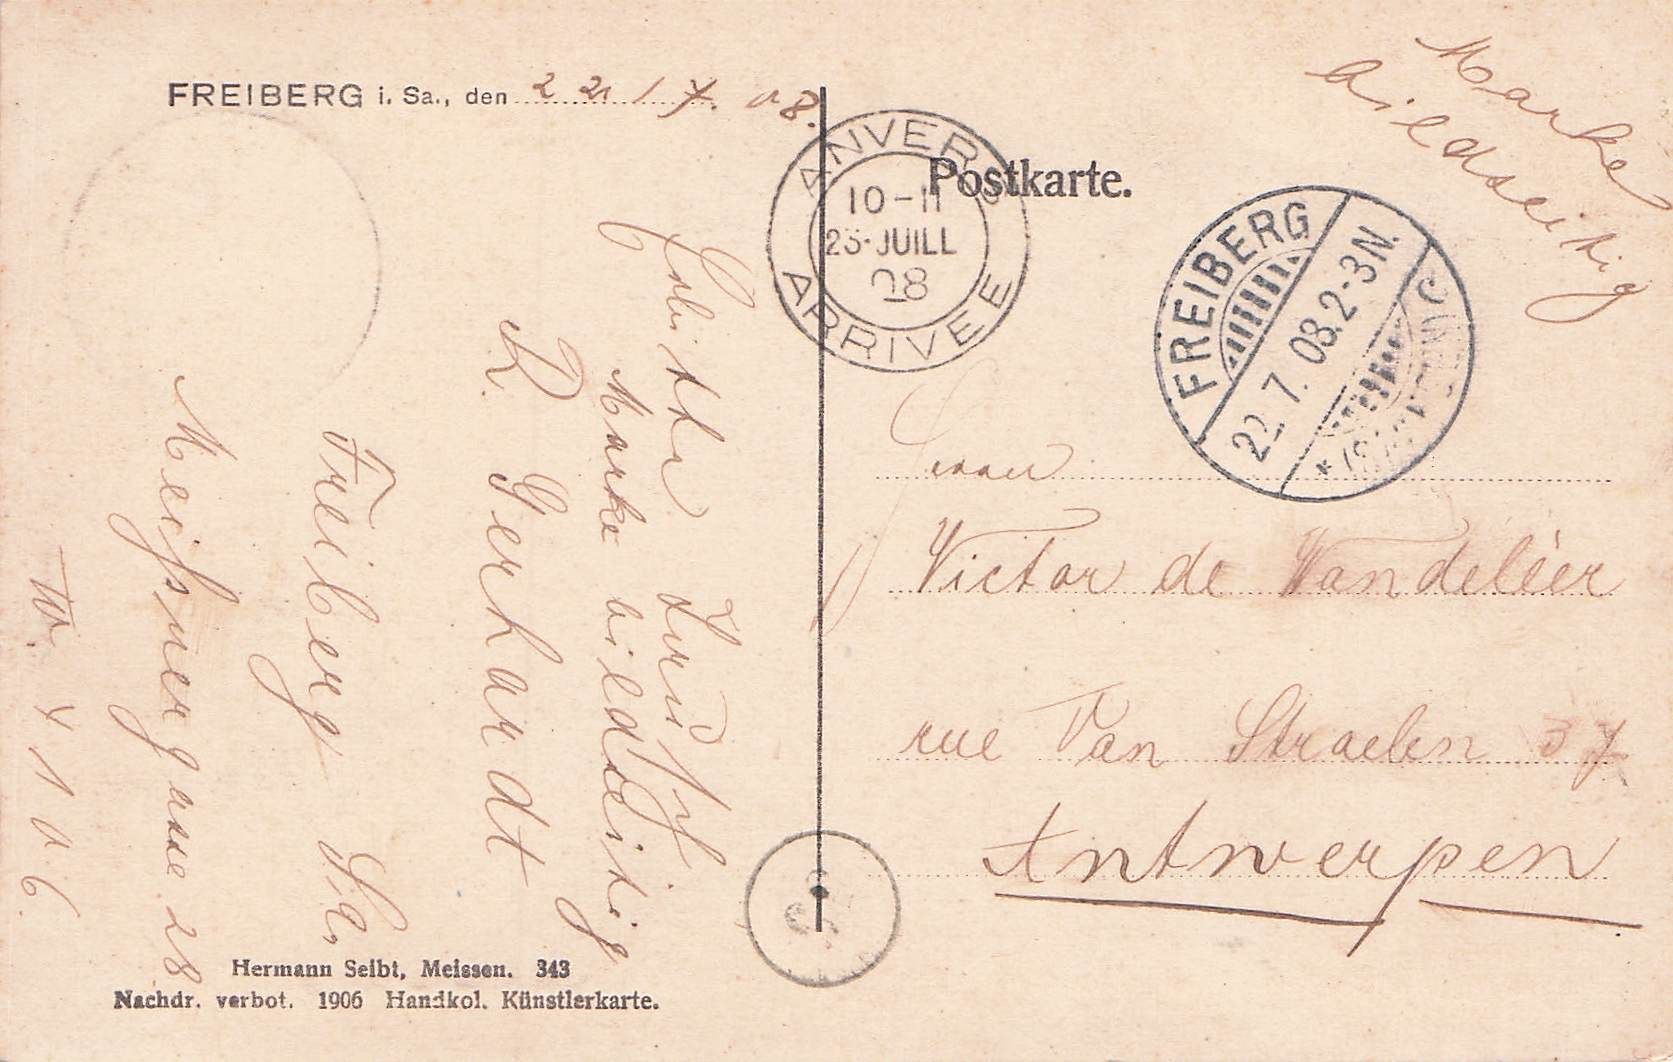 FREIBERG i. Sa., den 22 / 7. 08.
Postkarte.
Marke
bildseitig
ANVERS
10-11
23·JUILL
08
ARRIVEE
FREIBERG
22.7.08.2-3N.
*(SACHSEN)
Herrn
Victor de Wandeléer
rue Van Straelen 37
Antwerpen
Erbitte
Marke bildseitig
R. Gerhardt
Freiberg Sa.
Meißnergasse 28
Hermann Seibt, Meissen. 343
Nachdr. verbot. 1906 Handkol. Künstlerkarte.